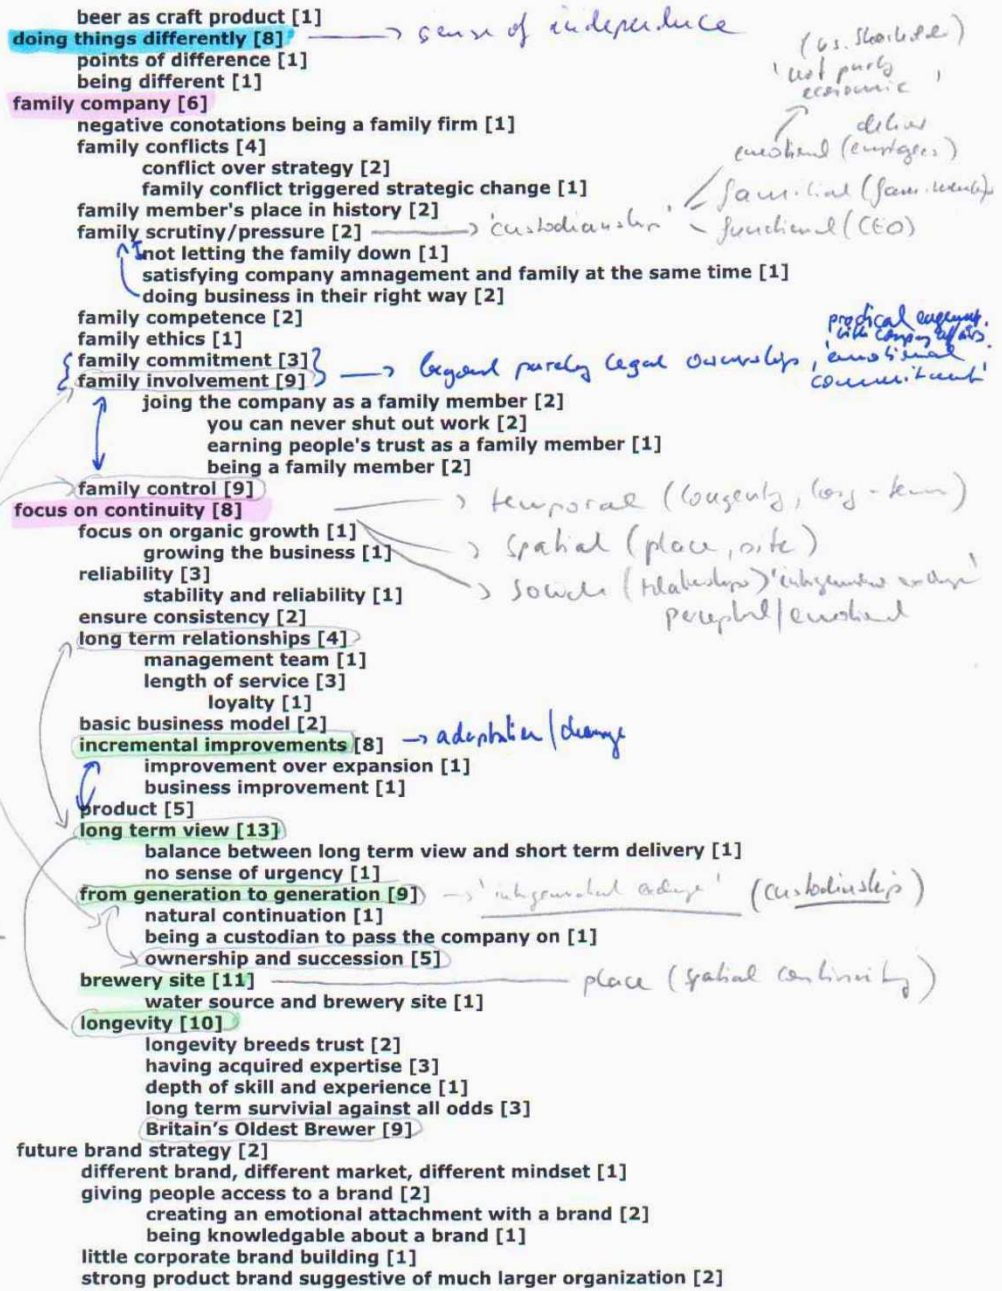 beer as craft product [1]
doing things differently [8] → sense of independence
points of difference [1]
being different [1]
(vs. 
'not purely
economic'
family company [6]
negative conotations being a family firm [1]
family conflicts [4]
emotional (employees)
conflict over strategy [2]
family conflict triggered strategic change [1]
familial (fam. members)
family member's place in history [2]
family scrutiny/pressure [2] → 'custodianship' functional (CEO)
not letting the family down [1]
satisfying company amnagement and family at the same time [1]
doing business in their right way [2]
family competence [2]
family ethics [1]
practical
with company affairs
{family commitment [3]}
{family involvement [9]} → beyond purely legal ownership, 'emotional
commitment'
joing the company as a family member [2]
you can never shut out work [2]
earning people's trust as a family member [1]
being a family member [2]
family control [9]
focus on continuity [8] → temporal (longevity, long-term)
focus on organic growth [1]
growing the business [1] → spatial (place, site)
reliability [3]
stability and reliability [1] → (relationships)
perceptual/emotional
ensure consistency [2]
long term relationships [4]
management team [1]
length of service [3]
loyalty [1]
basic business model [2]
incremental improvements [8] → adaptation/change
improvement over expansion [1]
business improvement [1]
product [5]
long term view [13]
balance between long term view and short term delivery [1]
no sense of urgency [1]
from generation to generation [9] → (custodianship)
natural continuation [1]
being a custodian to pass the company on [1]
ownership and succession [5]
brewery site [11] place (spatial continuity)
water source and brewery site [1]
longevity [10]
longevity breeds trust [2]
having acquired expertise [3]
depth of skill and experience [1]
long term survivial against all odds [3]
Britain's Oldest Brewer [9]
future brand strategy [2]
different brand, different market, different mindset [1]
giving people access to a brand [2]
creating an emotional attachment with a brand [2]
being knowledgable about a brand [1]
little corporate brand building [1]
strong product brand suggestive of much larger organization [2]